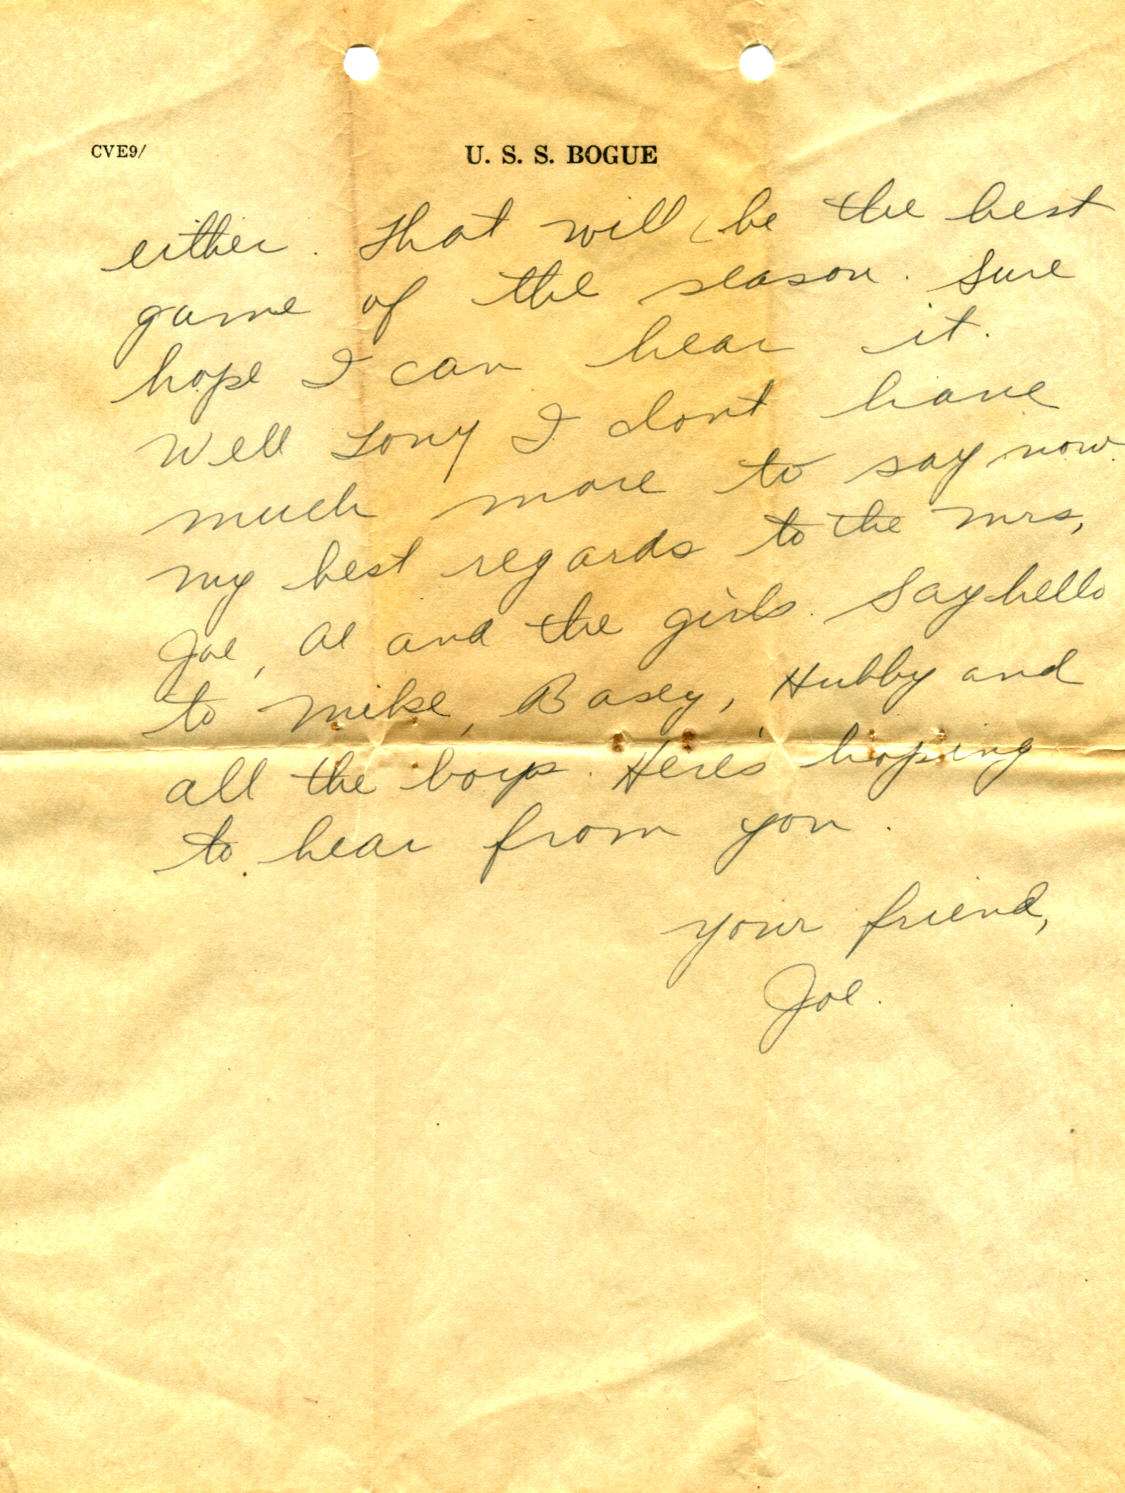 CVE9/
U. S. S. BOGUE
either. That will be the best
game of the season. Sure
hope I can hear it.
Well Tony I dont have
much more to say now.
my best regards to the Mrs,
Joe, Al and the girls. Say hello
to Mike, Basey, Hubby and
all the boys. Here's hoping
to hear from you.
your friend,
Joe.